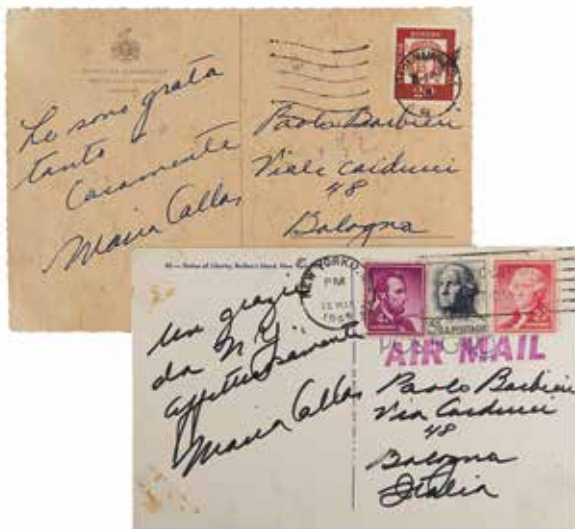 Le sono grata
tanto
Caramente
Maria Callas
Paolo Barbieri
Viale Carducci
48
Bologna
Statue of Liberty, Bedloe's Island, New
NEW YORK
PM
1965
Un grazie
da N.Y.
affettuosamente
Maria Callas
U.S. POSTAGE
AIR MAIL
Paolo Barbieri
Via Carducci
48
Bologna
Italia